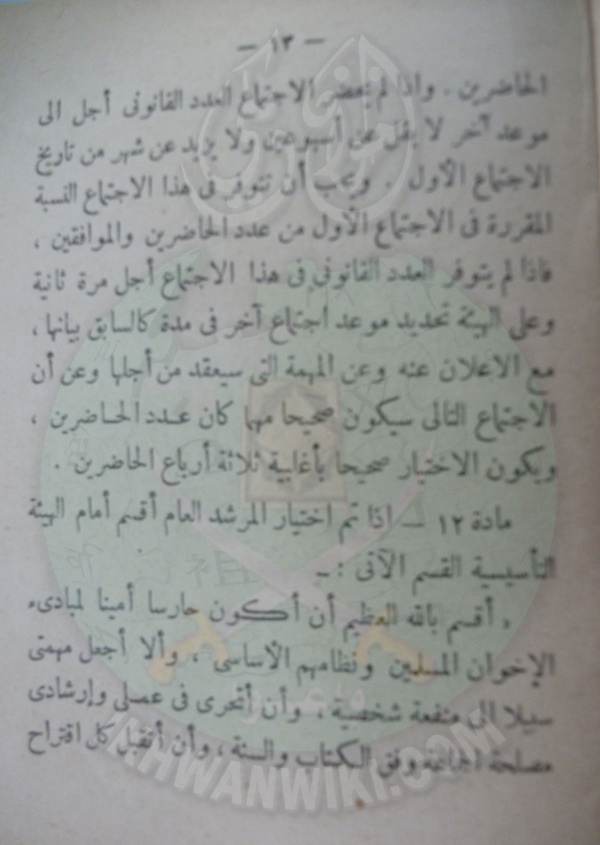 — ١٣ —
الحاضرين . واذا لم يحضر الاجتماع العدد القانونى أجل الى
موعد آخر لا يقل عن أسبوعين ولا يزيد عن شهر من تاريخ
الاجتماع الأول . ويجب أن تتوفر فى هذا الاجتماع النسبة
المقررة فى الاجتماع الأول من عدد الحاضرين والموافقين ،
فاذا لم يتوفر العدد القانونى فى هذا الاجتماع أجل مرة ثانية
وعلى الهيئة تحديد موعد اجتماع آخر فى مدة كالسابق بيانها ،
مع الاعلان عنه وعن المهمة التى سيعقد من أجلها وعن أن
الاجتماع التالى سيكون صحيحا مهما كان عدد الحاضرين ،
ويكون الاختيار صحيحا بأغلبية ثلاثة أرباع الحاضرين .
مادة ١٢ — اذا تم اختيار المرشد العام أقسم أمام الهيئة
التأسيسية القسم الآتى : ـ
« أقسم بالله العظيم أن أكون حارسا أمينا لمبادىء
الإخوان المسلمين ونظامهم الأساسى ، وألا أجعل مهمتى
سبيلا الى منفعة شخصية ، وأن أتحرى فى عملى وإرشادى
مصلحة الجماعة وفق الكتاب والسنة ، وأن أتقبل كل اقتراح
IKHWANWIKI.COM